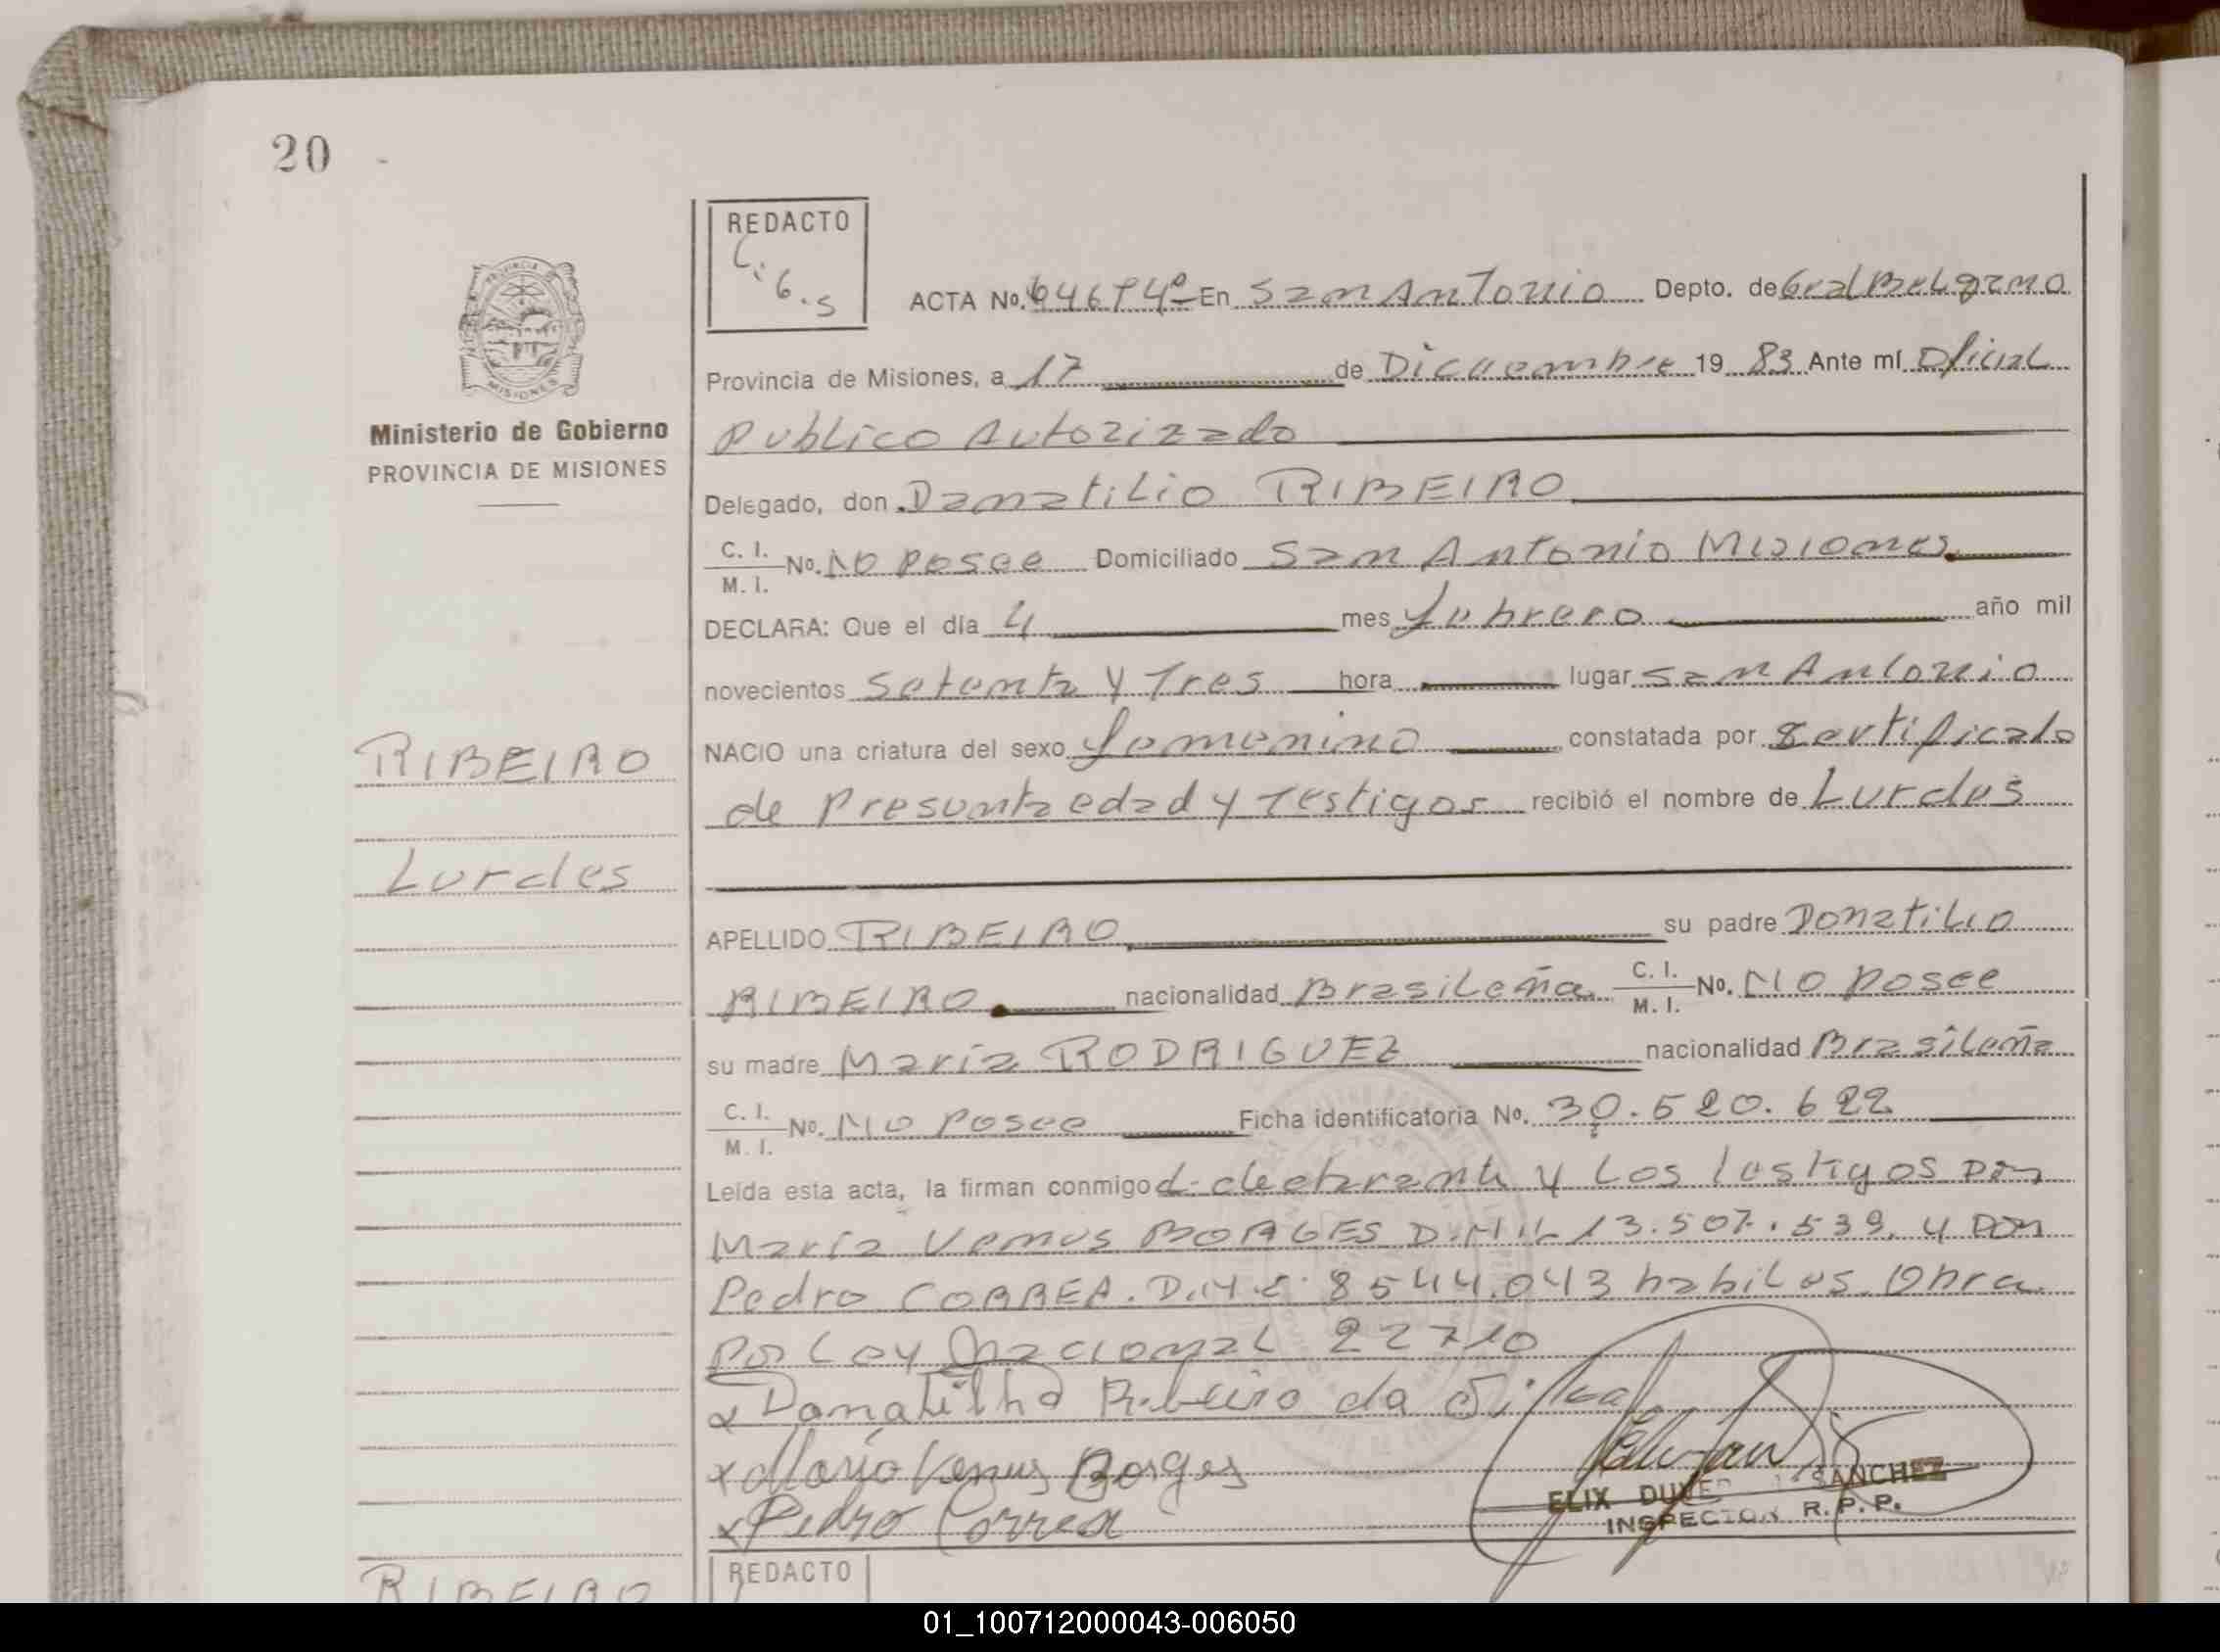 20
REDACTO
C.G.S
ACTA No. 646T4º En San Antonio Depto. de Gral Belgrano
Provincia de Misiones, a 17 de Diciembre 19 83 Ante mí Oficial
Publico Autorizado
Ministerio de Gobierno
PROVINCIA DE MISIONES
Delegado, don Danatilio RIBEIRO
C. I. / M. I. No. No posee Domiciliado San Antonio Misiones
DECLARA: Que el día 4 mes febrero año mil
novecientos Setenta y Tres hora lugar San Antonio
NACIO una criatura del sexo femenino constatada por certificado
de Presunta edad y Testigos recibió el nombre de Lurdes
RIBEIRO
Lurdes
APELLIDO RIBEIRO su padre Donatilio
RIBEIRO nacionalidad Brasileña C. I. / M. I. No. No posee
su madre Maria RODRIGUEZ nacionalidad Brasileña
C. I. / M. I. No. No posee Ficha identificatoria No. 30.520.622
Leída esta acta, la firman conmigo declarante y los testigos Don
Maria Venus BORGES D.N.I. 13.507.539. y Don
Pedro CORREA. D.N.I. 8544.043 habiles. Obra
por Ley Nacional 22710
x Donatilho Ribeiro da Silva
x Mario Venus Borges
x Pedro Correa
ELIX SANCHEZ
INSPECTOR R. P. P.
RIBEIRO
REDACTO
01_100712000043-006050